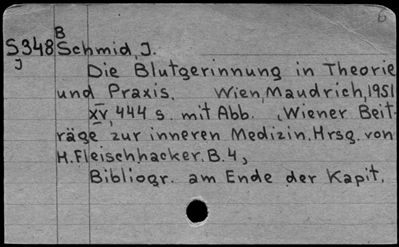 b
B
S348 Schmid, J.
J
Die Blutgerinnung in Theorie
und Praxis. Wien, Maudrich, 1951
XV, 444 s. mit Abb. (Wiener Beit-
räge zur inneren Medizin. Hrsg. von
H. Fleischhacker. B. 4,
Bibliogr. am Ende der Kapit.